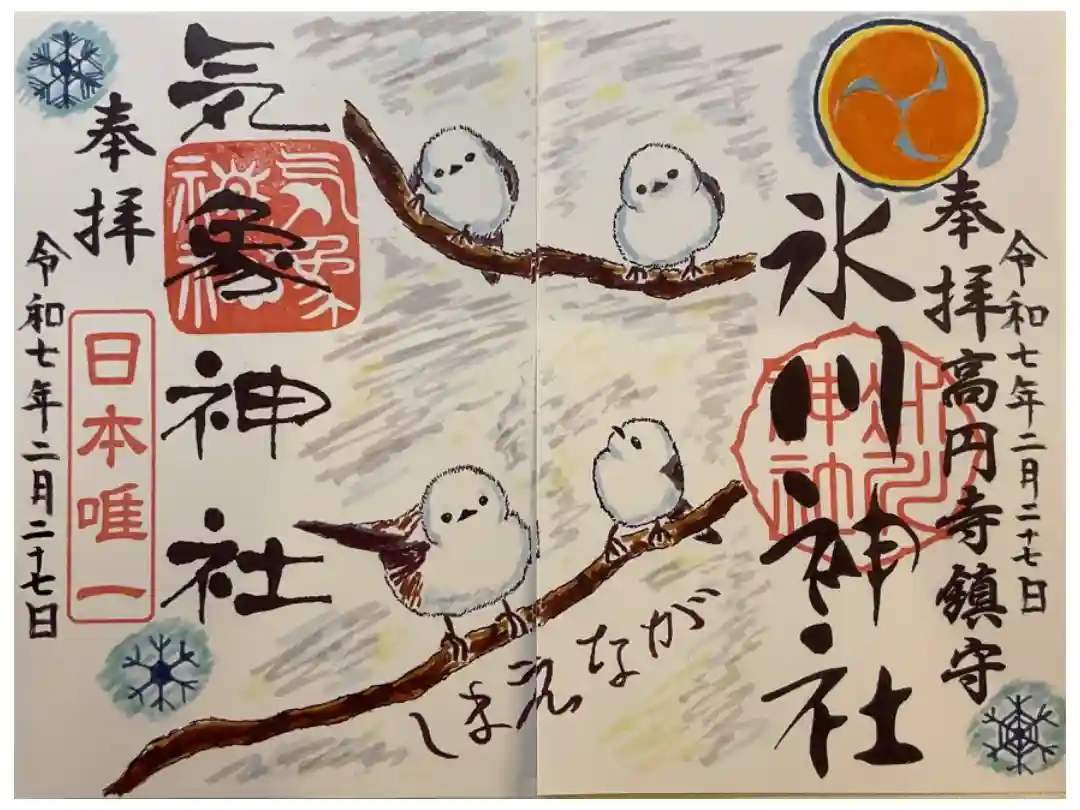 奉拝
令和七年二月二十七日
高円寺鎮守
氷川神社
氷川神社
しまえなが
気象神社
気象神社
奉拝
日本唯一
令和七年二月二十七日